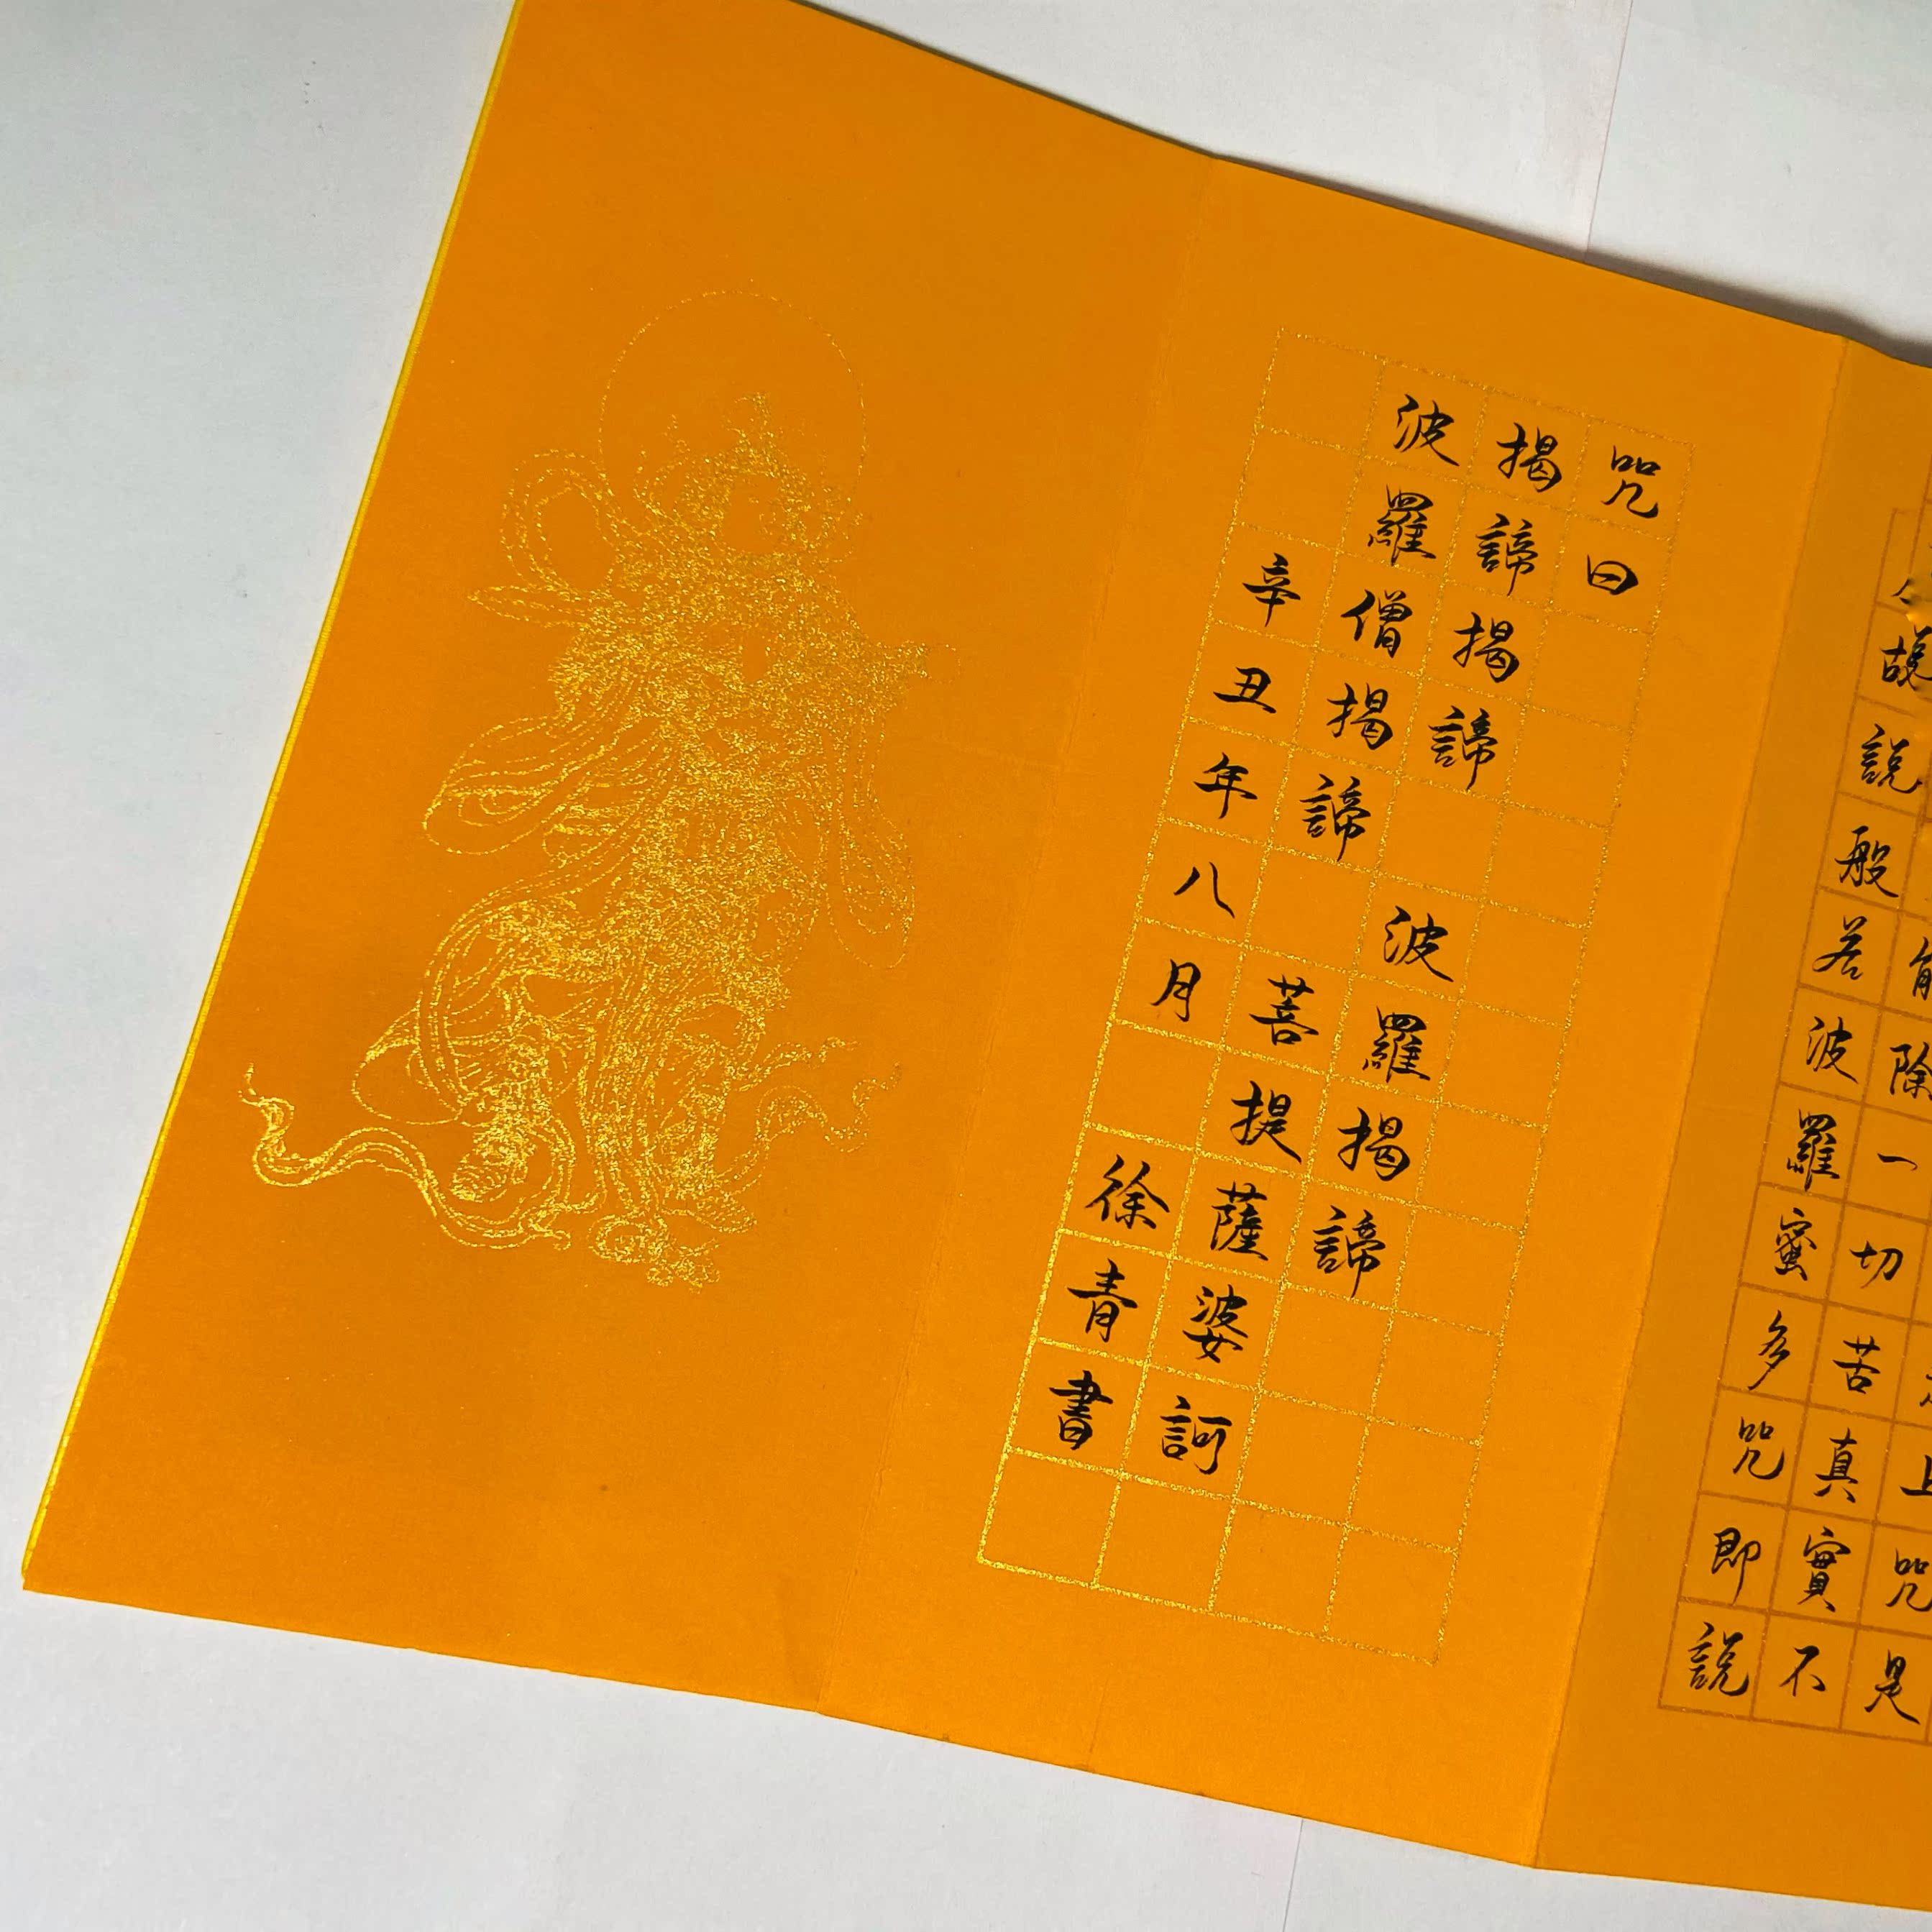 咒是
能除一切苦真實不
故說般若波羅蜜多咒即說
咒曰
揭諦揭諦 波羅揭諦
波羅僧揭諦 菩提薩婆訶
辛丑年八月 徐青書